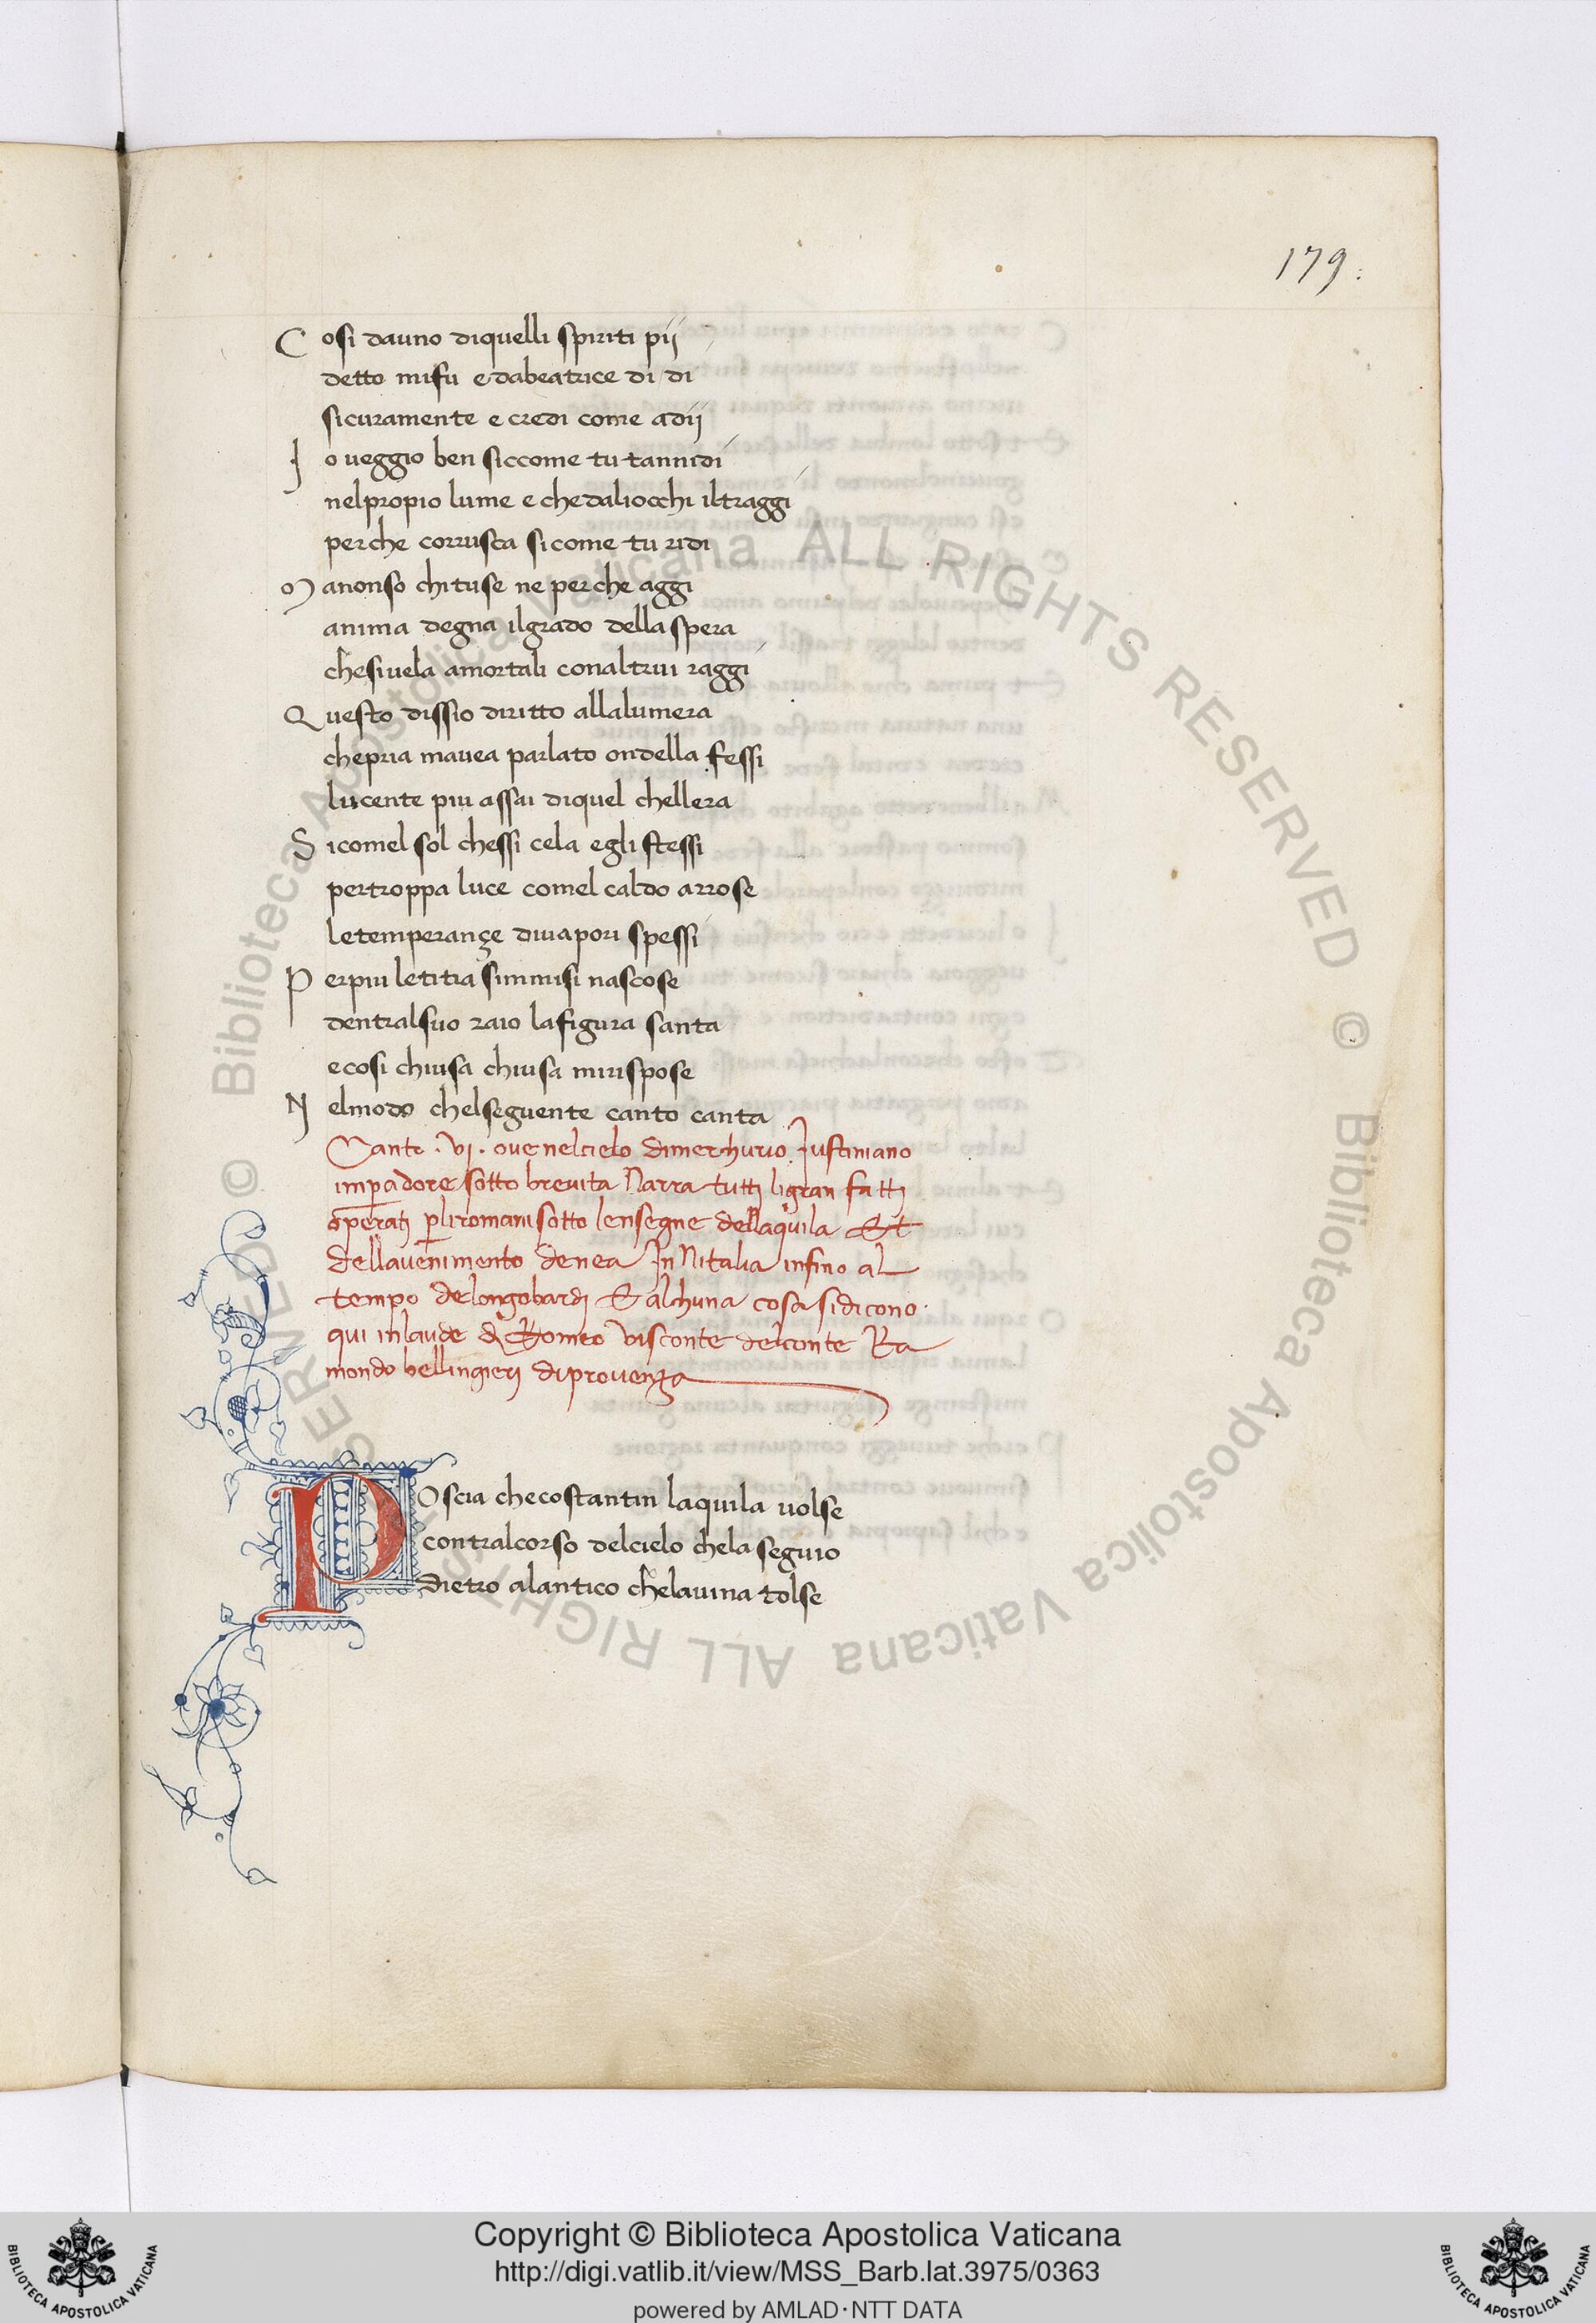 179.
Cosi dauno diquelli spiriti pij
detto mifu e dabeatrice di di
sicuramente e credi come adij
Io ueggio ben siccome tu tannidi
nelpropio lume e chedaliocchi iltraggi
perche corrusca sicome tu ridi
Manonso chituse ne perche aggi
anima degna ilgrado della spera
chesiuela amortali conaltrui raggi
Questo dissio diritto allalumera
chepria mauea parlato ondella fessi
lucente piu assai diquel chellera
Sicomel sol chessi cela egli stessi
pertroppa luce comel caldo arrose
letemperançe diuapori spessi
Perpiu letitia simmisi nascose
dentralsuo raio lafigura santa
ecosi chiusa chiusa mirispose
Nelmodo chelseguente canto canta
Canto . vj . oue nelcielo dimerchurio Justiniano
imperadore sotto breuita Narra tuttj ligran fattj
operatj pliromani sotto lensegne dellaquila Et
dellauenimento denea In Nitalia infino al
tempo delongobardj Et alchuna cosa sidicono.
qui inlaude dj Romeo visconte delconte Ra
mondo bellingierj diprouenza
POscia checostantin laquila uolse
contralcorso delcielo chela seguio
dietro alantico chelauina tolse
© Biblioteca Apostolica Vaticana ALL RIGHTS RESERVED
© Biblioteca Apostolica Vaticana ALL RIGHTS RESERVED
Copyright © Biblioteca Apostolica Vaticana
http://digi.vatlib.it/view/MSS_Barb.lat.3975/0363
powered by AMLAD·NTT DATA
BIBLIOTECA APOSTOLICA VATICANA
BIBLIOTECA APOSTOLICA VATICANA